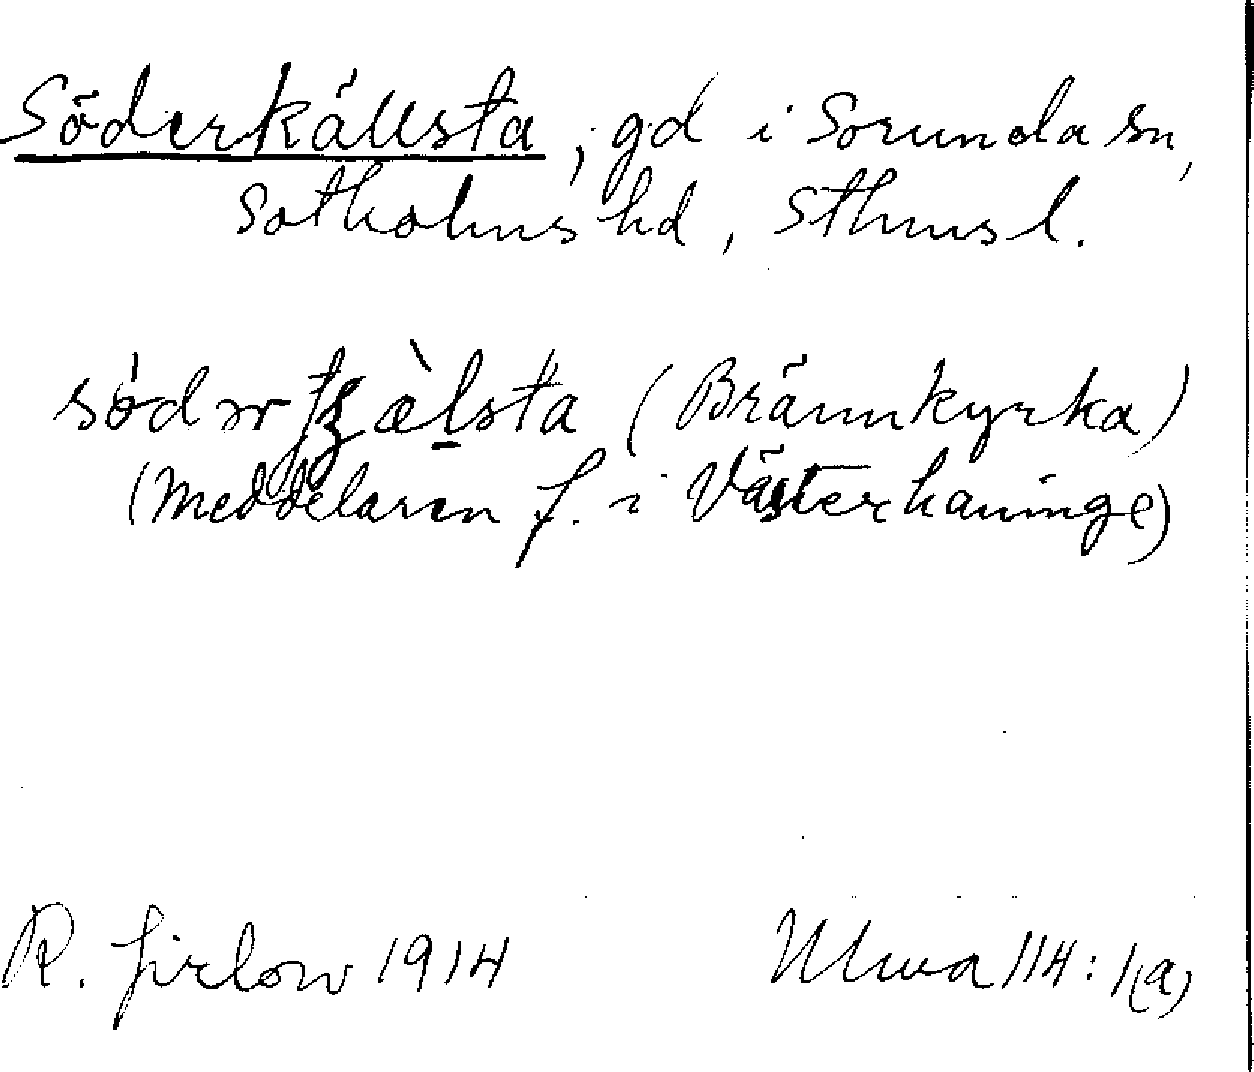 Söderkällsta, gd i Sorunda sn,
Sotholms hd, Sthms l.
(Brännkyrka)
(Meddelaren f. i Västerhaninge)
R. Jirlow 1914 Ulma 114:1(a)